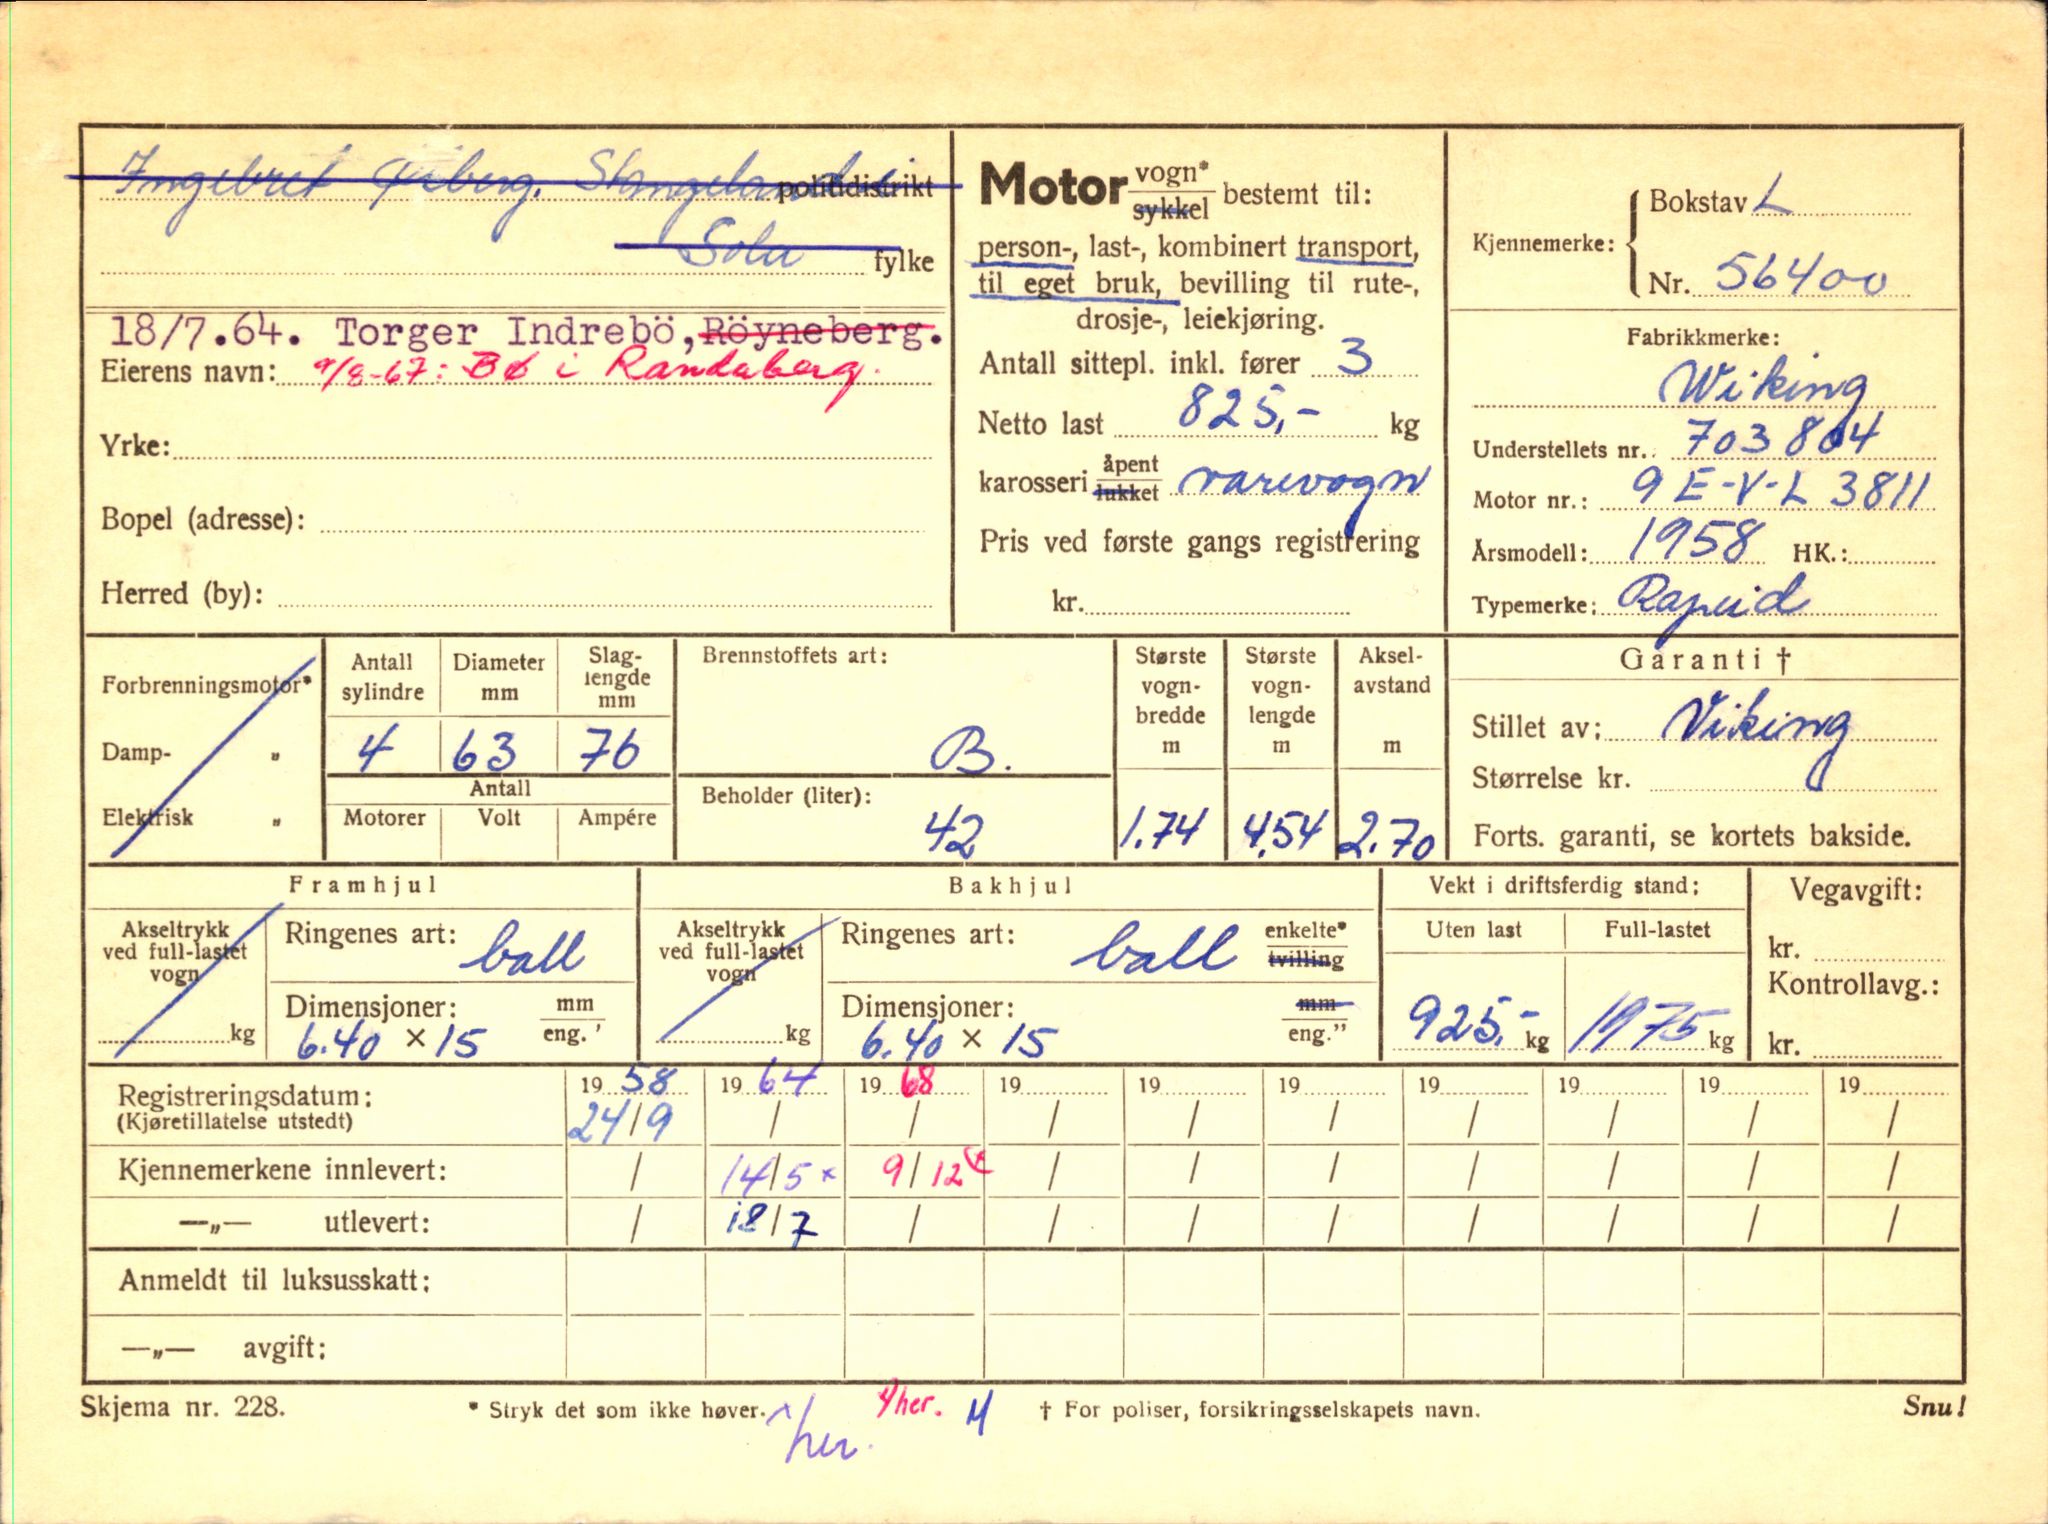 Ingebret Stangeland politidistrikt
Sola fylke
18/7.64. Torger Indrebö, Röyneberg.
Eierens navn: 9/8-67: Bø i Randaberg.
Yrke:
Bopel (adresse):
Herred (by):
Motor vogn* sykkel bestemt til:
person-, last-, kombinert transport,
til eget bruk, bevilling til rute-,
drosje-, leiekjøring.
Antall sittepl. inkl. fører 3
Netto last 825,- kg
karosseri åpent lukket varevogn
Pris ved første gangs registrering
kr.
Kjennemerke: Bokstav L
Nr. 56400
Fabrikkmerke:
Wiking
Understellets nr.: 703804
Motor nr.: 9 E-V-L 3811
Årsmodell: 1958 HK.:
Typemerke: Rapid
Forbrenningsmotor*
Damp- „
Elektrisk „
Antall sylindre Diameter mm Slaglengde mm
4 63 76
Antall
Motorer Volt Ampére
Brennstoffets art:
B.
Beholder (liter):
42
Største vognbredde m Største vognlengde m Akselavstand m
1.74 4.54 2.70
Garanti †
Stillet av: Viking
Størrelse kr.
Forts. garanti, se kortets bakside.
Framhjul
Akseltrykk ved full-lastet vogn kg
Ringenes art: ball
Dimensjoner: mm eng.'
6.40 × 15
Bakhjul
Akseltrykk ved full-lastet vogn kg
Ringenes art: ball enkelte* tvilling
Dimensjoner: mm eng."
6.40 × 15
Vekt i driftsferdig stand:
Uten last Full-lastet
925,- kg 1975 kg
Vegavgift:
kr.
Kontrollavg.:
kr.
Registreringsdatum: 19 58 19 64 19 68 19 19 19 19 19 19 19
(Kjøretillatelse utstedt) 24/9 / / / / / / / / /
Kjennemerkene innlevert: / 14/5 x 9/12 x / / / / / / /
—„— utlevert: / 18/7 / / / / / / / /
Anmeldt til luksusskatt:
—„— avgift:
Skjema nr. 228. * Stryk det som ikke høver. her. M † For poliser, forsikringsselskapets navn. Snu!
her.